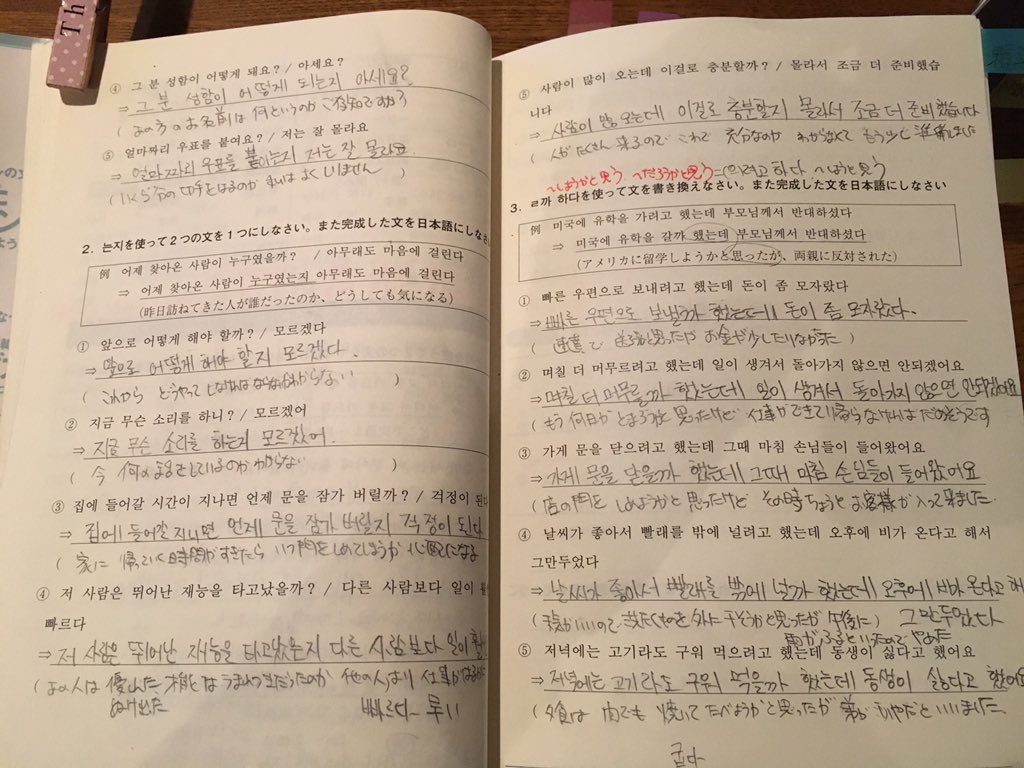 Th
④ 그 분 성함이 어떻게 돼요? / 아세요?
⇒ 그 분 성함이 어떻게 되는지 아세요?
(あの方のお名前は何というのかご存知ですか)
⑤ 얼마짜리 우표를 붙여요? / 저는 잘 몰라요
⇒ 얼마짜리 우표를 붙이는지 저는 잘 몰라요
(いくら分の切手をはるのか 私はよくしりません)
2. 는지を使って2つの文を1つにしなさい。また完成した文を日本語にしなさ
例 어제 찾아온 사람이 누구였을까? / 아무래도 마음에 걸린다
⇒ 어제 찾아온 사람이 누구였는지 아무래도 마음에 걸린다
(昨日訪ねてきた人が誰だったのか、どうしても気になる)
① 앞으로 어떻게 해야 할까? / 모르겠다
⇒ 앞으로 어떻게 해야 할지 모르겠다.
(これから どうやって しなければならないかわからない)
② 지금 무슨 소리를 하니? / 모르겠어
⇒ 지금 무슨 소리를 하는지 모르겠어.
(今 何の をしているのか わからない)
③ 집에 들어갈 시간이 지나면 언제 문을 잠가 버릴까? / 걱정이 된다
⇒ 집에 들어갈 지나면 언제 문을 잠가 버릴지 걱정이 된다
(家に 帰っていく時間がすぎたら いつ門をしめてしまうか 心配になる
④ 저 사람은 뛰어난 재능을 타고났을까? / 다른 사람보다 일이
빠르다
⇒ 저 사람은 뛰어난 재능을 타고났는지 다른 사람보다 일이
(あの人は 優れた 才能は うまれつきだったのか 他の人より 仕事が
빠르다
⑤ 사람이 많이 오는데 이걸로 충분할까? / 몰라서 조금 더 준비했습
니다
⇒ 사람이 많이 오는데 이걸로 충분할지 몰라서 조금 더 준비했습니다
(人がたくさん 来るので これで 充分なのか わからなくて もう少し準備しました
~しようかと思う ~だろうかと思う =(으)려고 하다 ~しようと思う
3. ㄹ까 하다を使って文を書き換えなさい。また完成した文を日本語にしなさい
例 미국에 유학을 가려고 했는데 부모님께서 반대하셨다
⇒ 미국에 유학을 갈까 했는데 부모님께서 반대하셨다
(アメリカに留学しようかと思ったが、両親に反対された)
① 빠른 우편으로 보내려고 했는데 돈이 좀 모자랐다.
⇒ 빠른 우편으로 보낼까 했는데 돈이 좀 모자랐다.
(速達で 送ろうかと思ったが お金が少したりなかった)
② 며칠 더 머무르려고 했는데 일이 생겨서 돌아가지 않으면 안되겠어요
⇒ 며칠 더 머무를까 했는데 일이 생겨서 돌아가지 않으면 안되겠어요
(もう何日か とまろうかと思ったけど 仕事ができて 帰らなければ だめそうです
③ 가게 문을 닫으려고 했는데 그때 마침 손님들이 들어왔어요
⇒ 가게 문을 닫을까 했는데 그때 마침 손님들이 들어왔어요
(店の門を しめようかと思ったけど その時 ちょうど お客様が 入って来ました.
④ 날씨가 좋아서 빨래를 밖에 널려고 했는데 오후에 비가 온다고 해서
그만두었다
⇒ 날씨가 좋아서 빨래를 밖에 널까 했는데 오후에 비가 온다고 해
그만두었다
(天気がいいので 洗たくものを外に干そうかと思ったが 午後に
雨がふるというのでやめた
⑤ 저녁에는 고기라도 구워 먹으려고 했는데 동생이 싫다고 했어요
⇒ 저녁에는 고기라도 구워 먹을까 했는데 동생이 싫다고 했어요
(夕食は 肉でも 焼いて たべようかと思ったが 弟が いやだと いいました.
굽다